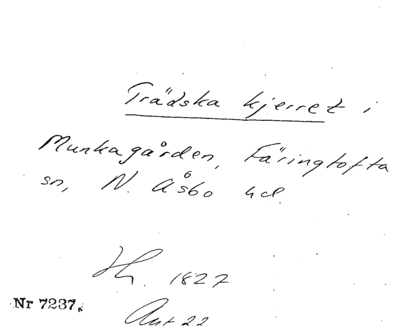 Trädska kjerret i
Munkagården, Färingtofta
sn, N. Åsbo hd.
H. 1827
Nr 7237.
Ant 22